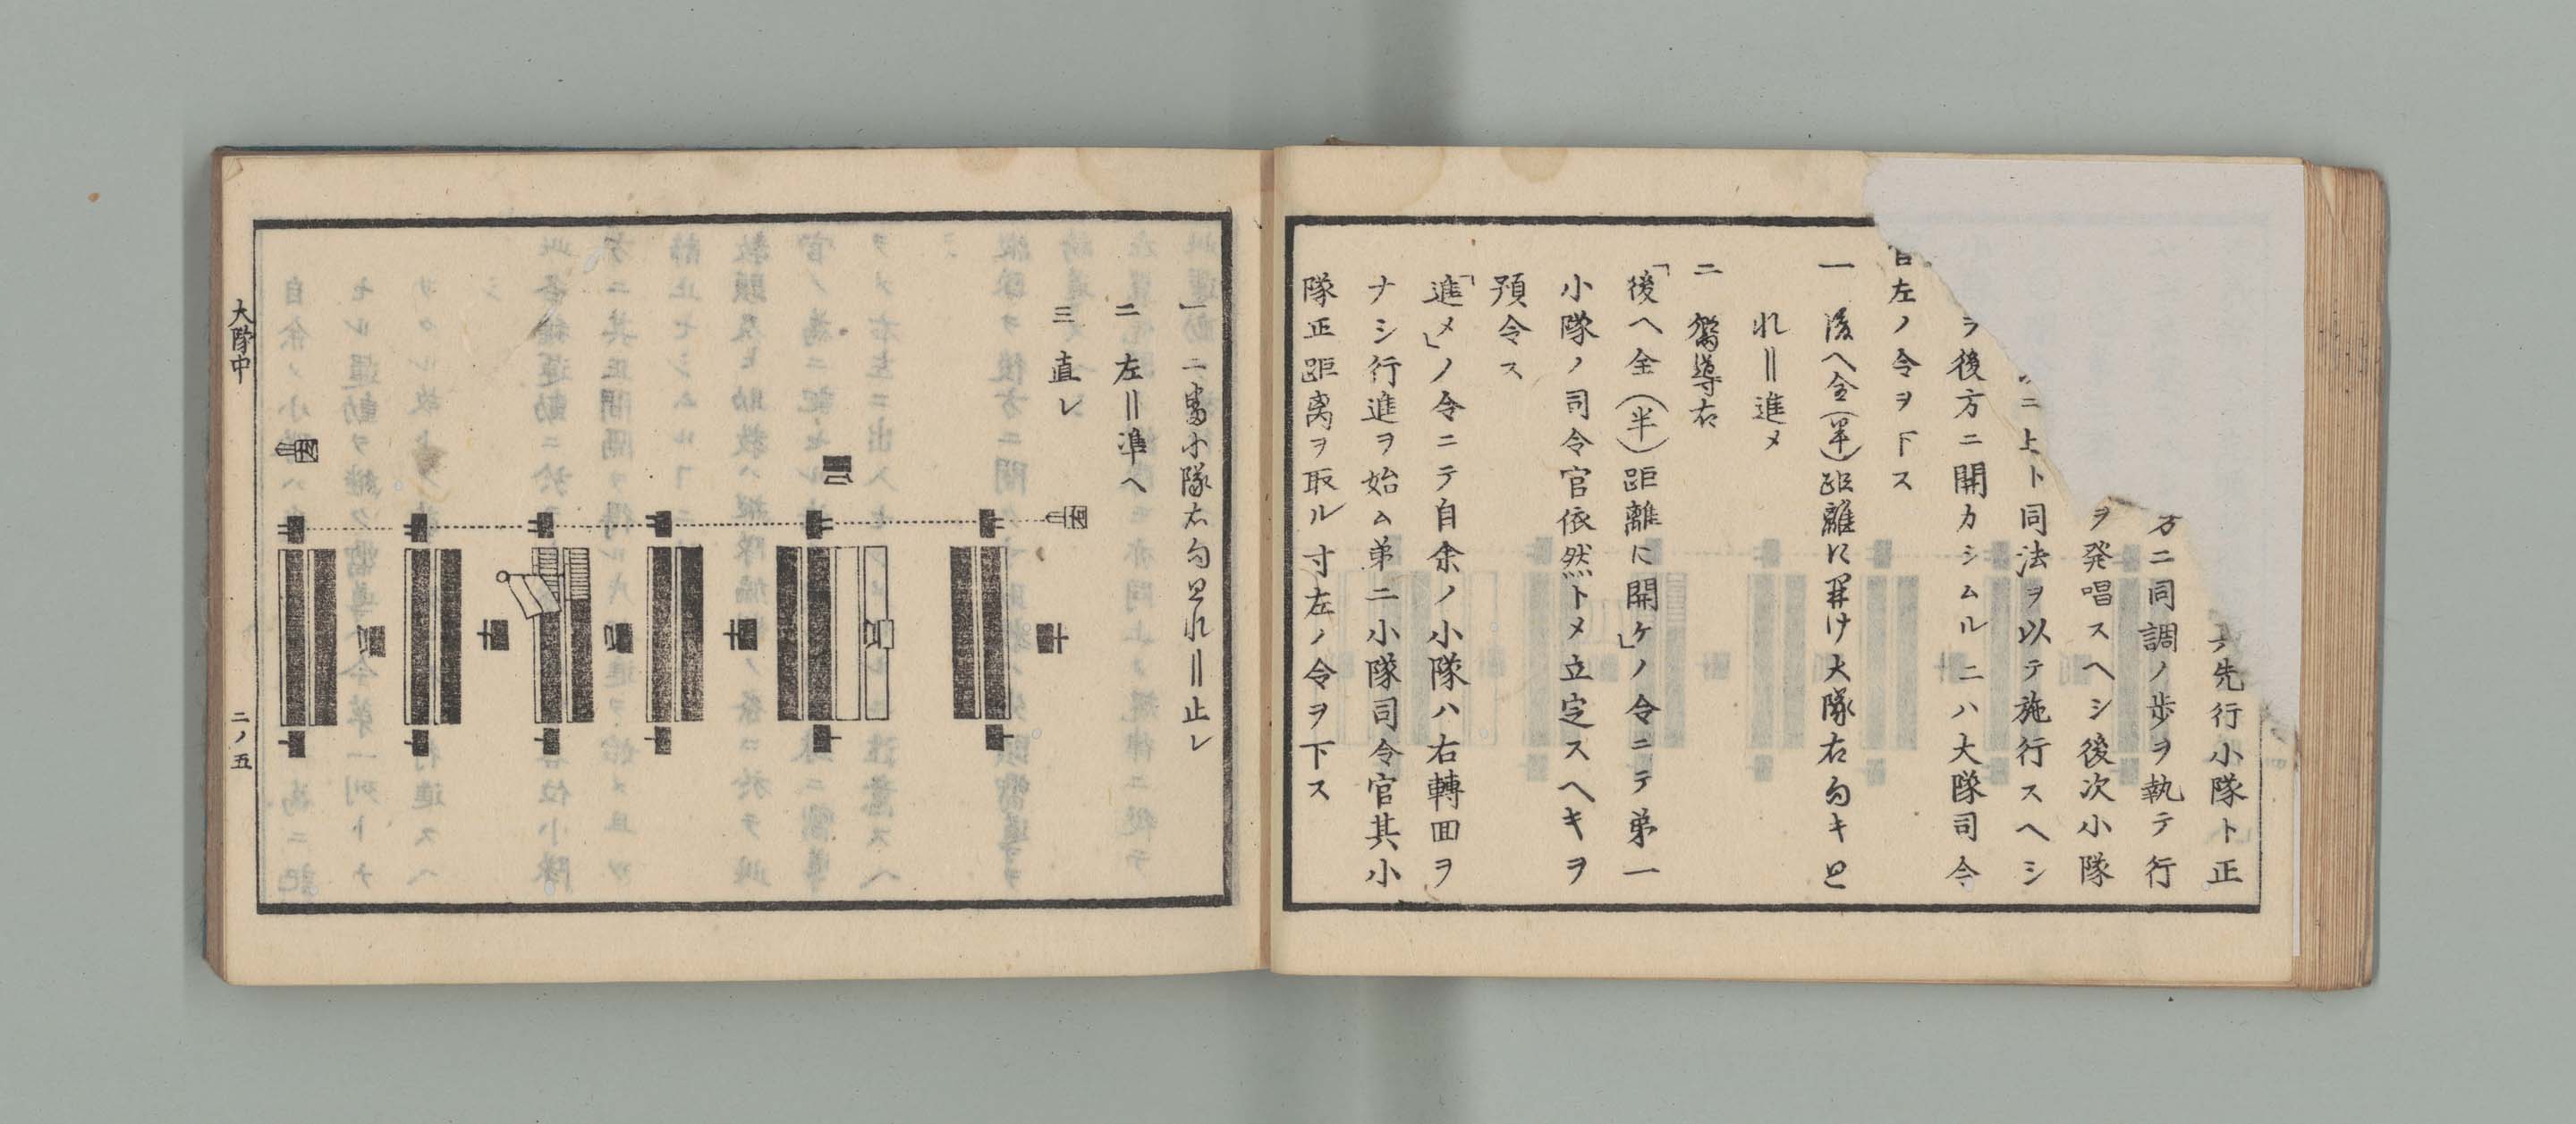 先行小隊ト正
ニ同調ノ歩ヲ執テ行
ヲ発唱スヘシ後次小隊
ニ上ト同法ヲ以テ施行スヘシ
ヲ後方ニ開カシムル二ハ大隊司令
官左ノ令ヲ下ス
一 後へ全(半)距離に開け大隊右向キ
れ‖進メ
二 嚮導右
「後へ全(半)距離に開ケ」ノ令ニテ弟一
小隊ノ司令官依然トメ立定スヘキヲ
預令ス
「進メ」ノ令ニテ自余ノ小隊ハ右轉回ヲ
ナシ行進ヲ始ム弟二小隊司令官其小
隊正距离ヲ取ル寸左ノ令ヲ下ス
一 二番小隊右向れ‖止レ
二 左‖準へ
三 直レ
右
大隊中
二ノ五